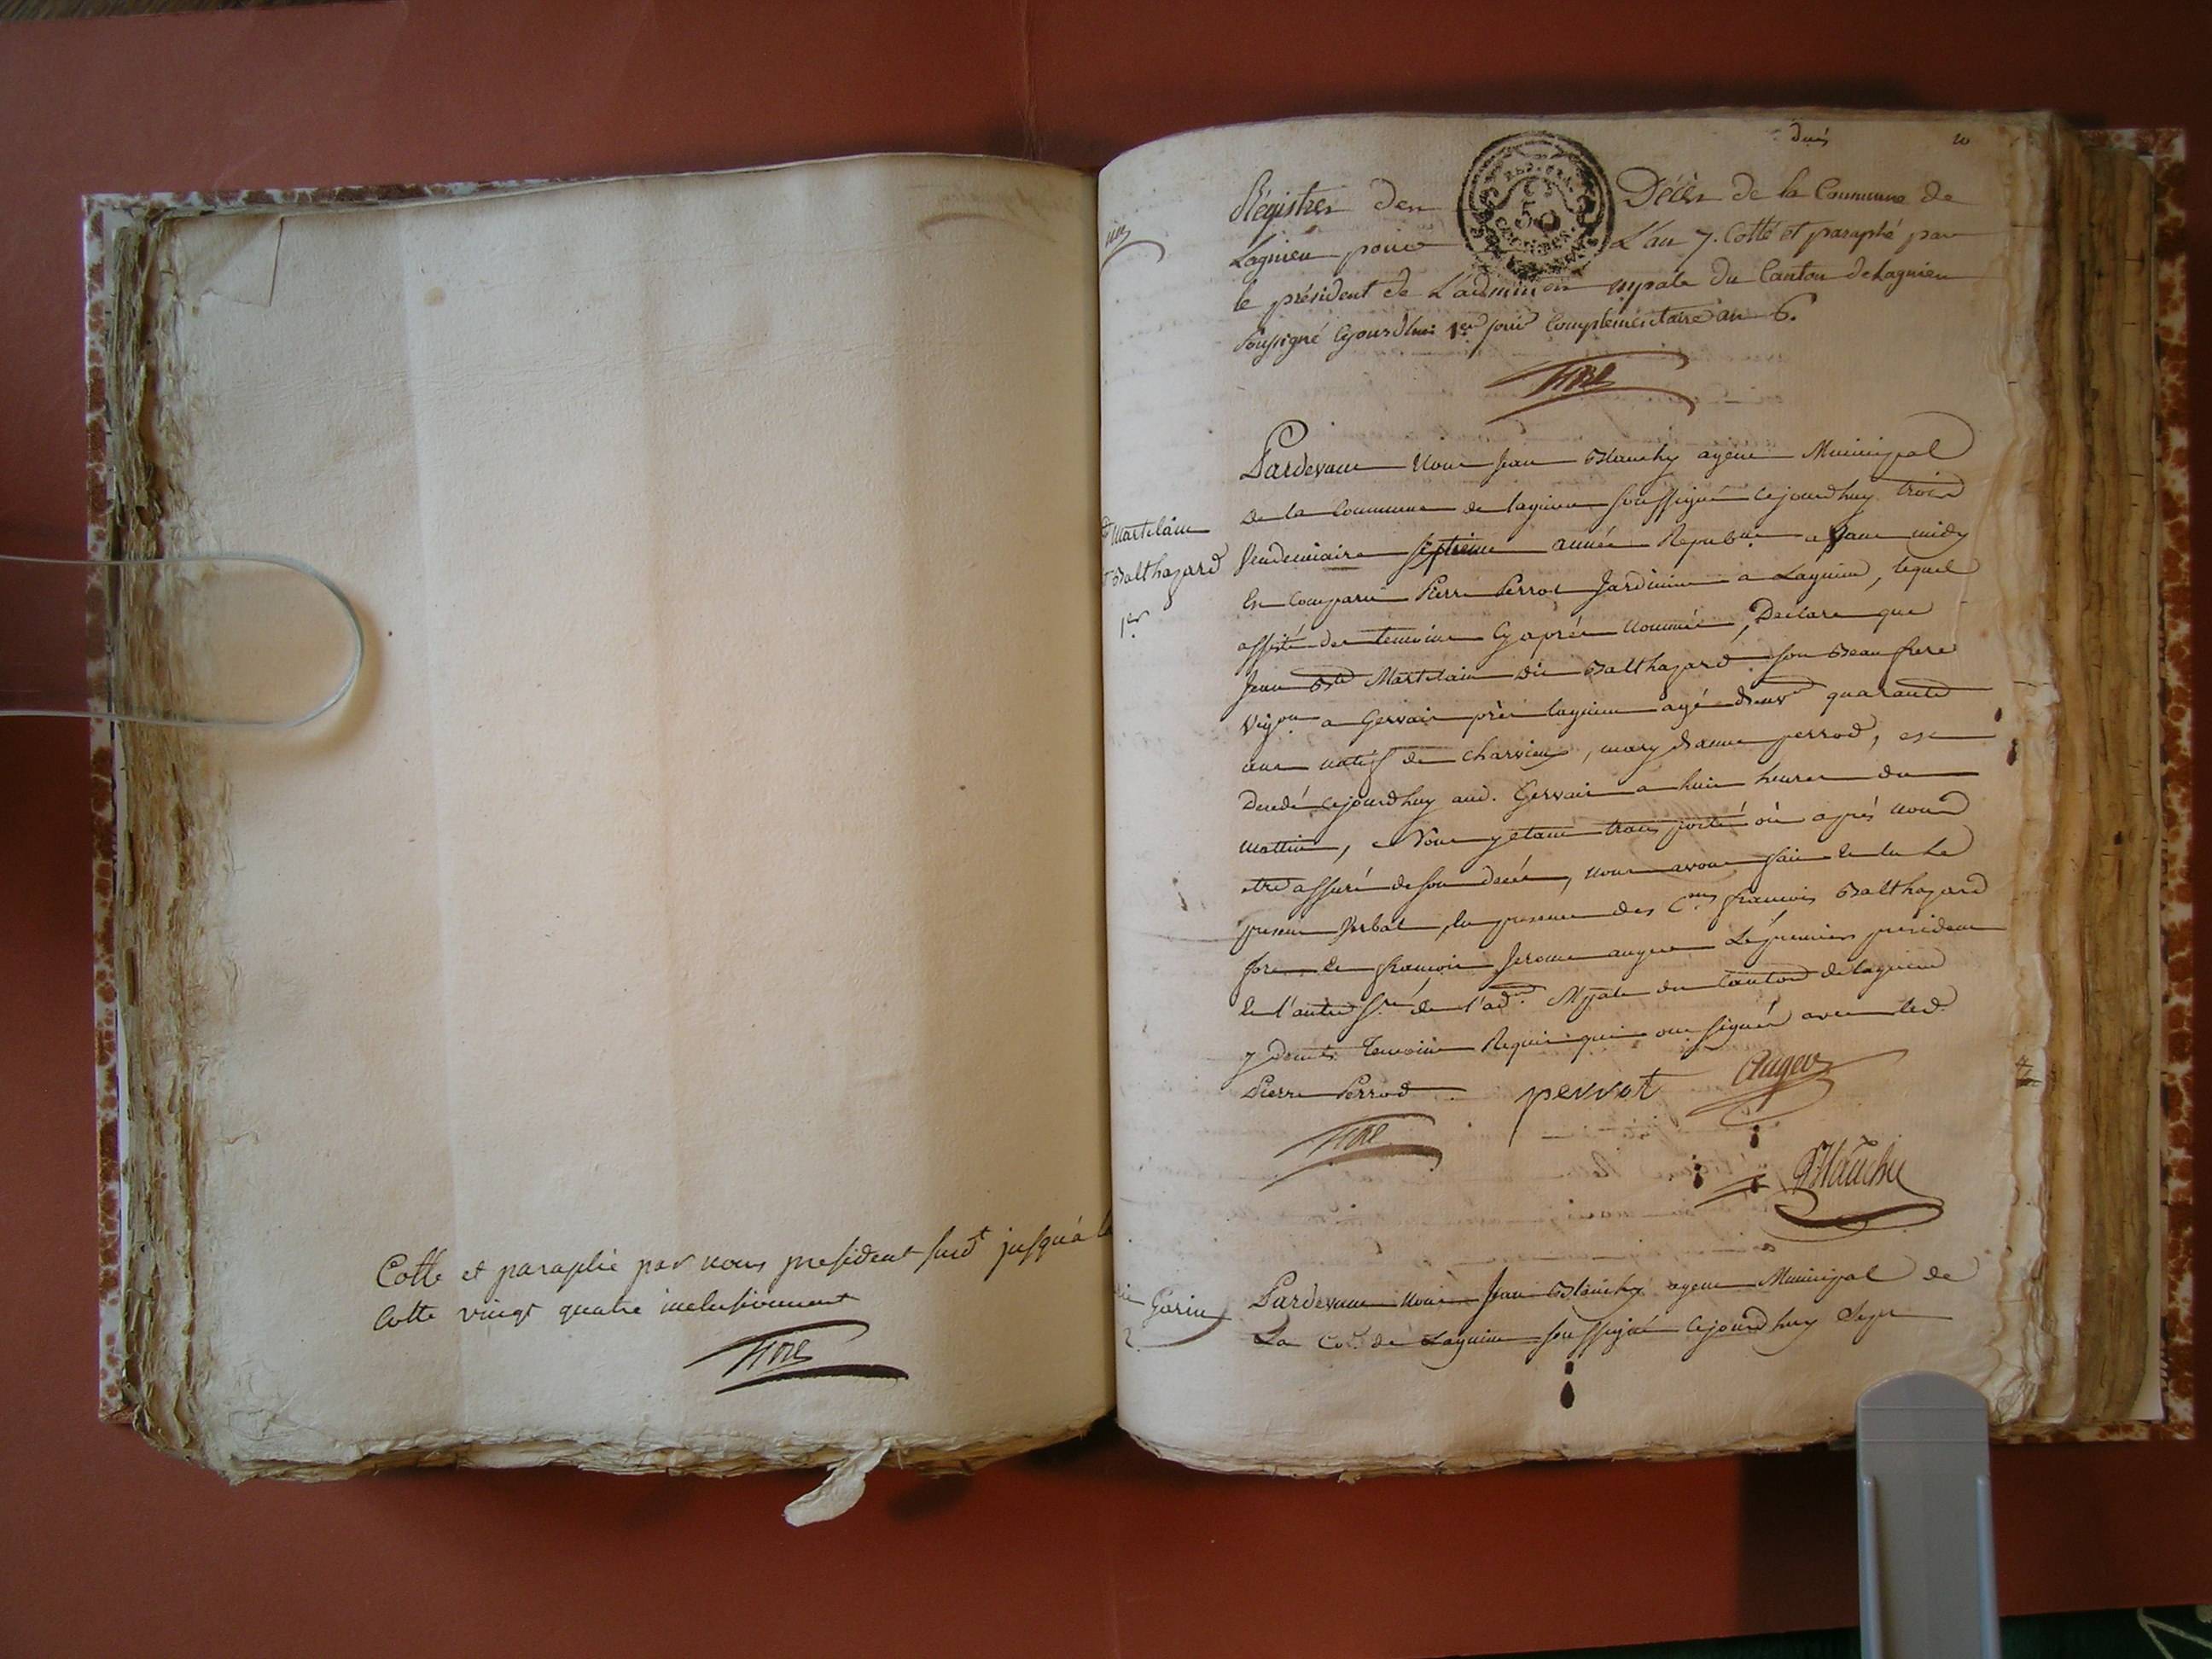 Cotte et paraphé par nous president susdt jusqu'à la
Cotte vingt quatre inclusivement
Fore
un
50
Régistres des Décès de la Commune de
Lagnieu pour L'an 7. Cotté et paraphé par
le président de L'adminon mpale du Canton de Lagnieu
soussigné Cejourdhui 1er jour Complementaire an 6.
Fore
Martelain
Balthazard
1er
Pardevant Nous Jean Blanchy agent Municipal
de la Commune de lagnieu soussigné cejourdhuy trois
Vendemiaire septieme année Republ. avant midy
Est comparu Pierre Perrod Jardinier a Lagnieu, lequel
assisté des temoins cy après nommés, Declare que
Jean Bte Martelain dit Balthazard son Beau frere
Vigon a Gervais près lagnieu agé d'env. quarante
ans natif de Charvieu, mary d'anne perrod, est
decedé cejourdhuy aud. Gervais a huit heures du
mattin, Nous y etant transporté où après nous
etre assuré de son decés, nous avons fait le
present Verbal, en presence des Cens francois Balthazard
fore et francois Jerome auger Le premier president
et l'autre sre de l'adon Mpale du Canton de lagnieu
y demts Temoins Requis qui ont signés avec led.
Pierre Perrod
perrot
Auger
Fore
Blanchy
Garin
2
Pardevant Nous Jean Blanchy agent Municipal de
La Cne de Lagnieu soussigné cejourdhuy Sept